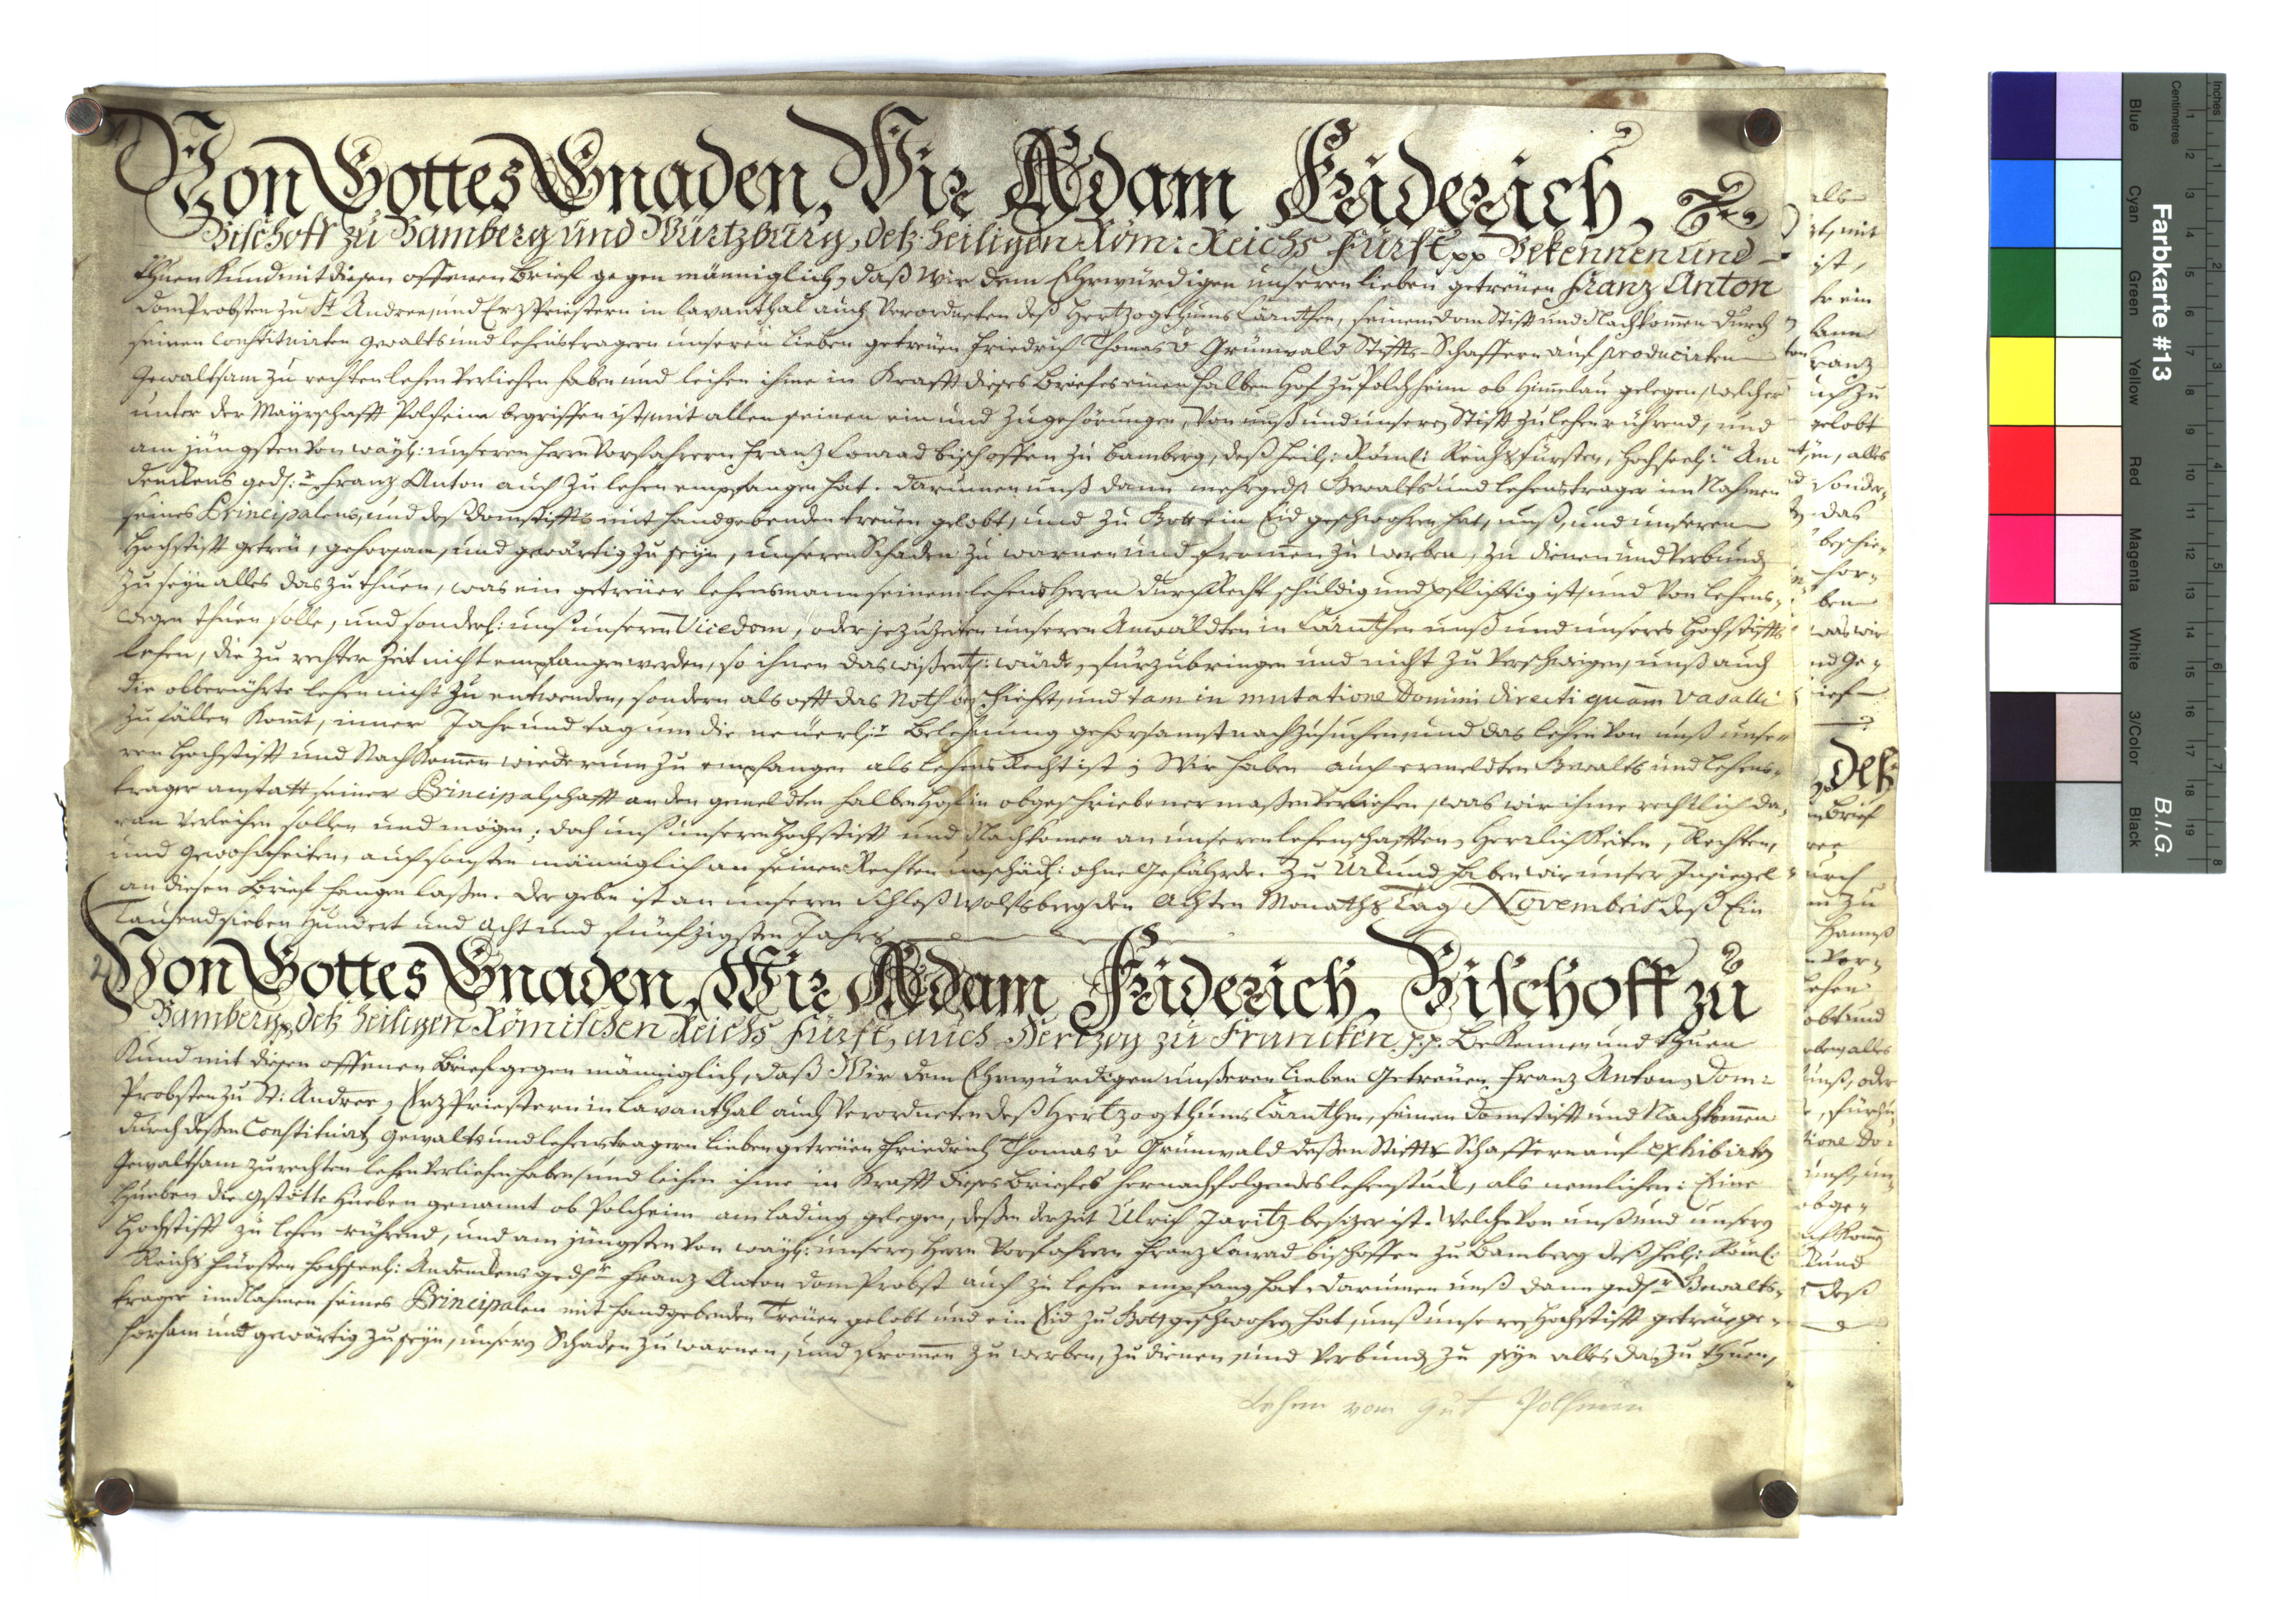 Von Gottes Gnaden, Wir Adam Friderich,
Bischoff zu Bamberg und Würtzburg, deß heiligen Röm: Reichs Fürst pp Bekennen und
thuen Kund mit diesen offenen Brief gegen männiglich, daß Wir dem Ehrwürdigen unseren lieben getreüen Franz Anton
Dom Probsten zu St Andree, und Erz Priestern in Lavanthal auch Verordneten deß Hertzogthums Cärnthen, seinem Dom Stift und Nachkomen durch
seinen Constituirten Gewalts und lehenstragern unseren lieben getreüen Friedrich Thomas v Grünwald Stiffts-Schaffern auf producirten
Gewaltsam zu rechten lehen verliehen haben und leihen ihme in Krafft dieses Briefes einen halben Hof zu Polchheim ob Himelau gelegen, welcher
unter der Mayrschafft Polheim begriffen ist, mit allen seinen ein und zugehörungen, von unß und unseren Stifft zu lehen rührend, und
am jüngsten von wayl: unseren Herrn Vorfahrern Franz Conrad bischoffen zu Bamberg, deß heil: Röml: Reichs Fürsten, hochseel: An
denckens ged: Franz Anton auch zu lehen empfangen hat. darumen unß dann mehrged: Gewalts und lehenstrager im Nahmen
seines Principalens, und deß Domstiffts mit handgebenden treüen gelobt, und zu Gott ein Eid geschwohren hat, unß, und unseren
Hochstifft getreü, gehorsam, und gewärtig zu seyn, unseren Schaden zu warnen und fromen zu werben, zu dienen und verbund
zu seyn alles das zu thuen, was ein getreüer lehensmann seinem lehens Herrn durch Recht schuldig und pflichtig ist, und von lehens-
wegen thuen solle, und sonderl: unß unseren Vicedom, oder jezuzeiten unseren Anwäldten in Cärnthen unß und unseres Hochstiffts
lehen, die zu rechter Zeit nicht empfangen werden, so ihnen das wißentl: würde, fürzubringen und nicht zu verschweigen, unß auch
die obberührte lehen nicht zu entwenden, sondern als offt das Noth beschiehet, und tam in mutatione Domini directi quàm Vasalli
zu fällen Komt, inner Jahr und tag um die neüerl: Belehnung gehorsamst nachzusuchen, und das lehen von unß unse-
ren Hochstifft und Nachkomen wiederum zu empfangen als lehens Recht ist; Wir haben auch ermeldten Gewalts und lehens-
trager anstatt seiner Principalschafft an den gemeldten halben Hof in obgeschriebener maßen verliehen, was wir ihme rechtlich da-
ran verleihen sollen und mögen; doch unß unseren Hochstifft und Nachkomen an unseren lehenschafften, Herrlichkeiten, Rechten,
und Gewohnheiten, auch sonsten männiglich an seinen Rechten unschädl: ohne Gefährde. Zu Urkund haben wir unser Insiegel
an diesen Brief hangen laßen. Der geben ist an unseren Schloß Wolfsberg den Achten Monaths Tag Novembris deß Ein
Tausend sieben Hundert und acht und fünfzigsten Jahrs
2 Von Gottes Gnaden, Wir Adam Friderich, Bischoff zu
Bamberg, deß heiligen Römischen Reichs Fürst, auch Hertzog zu Francken p.p. Bekennen und thuen
Kund mit diesen offenen Brief gegen männiglich, daß Wir dem Ehrwürdigen unßeren lieben Getreüen Franz Anton, Dom-
Probsten zu St: Andree, Erz Priestern in Lavanthal auch Verordneten deß Hertzogthums Cärnthen, seinen Domstifft und Nachkomen
durch deßen Constituirt Gewalts und lehenstragern lieben getreüen Friedrich Thomas v Grünwald deßen Stiffts Schaffern auf exhibirten
Gewaltsam zu rechten lehen verliehen haben, und leihen ihme in Krafft dieses Briefes hernachfolgendes lehenstuck, als nemlichen: Eine
Hueben die Gstötte Hueben genannt ob Polcheim am lading gelegen, deßen derzeit Ulrich Jaritz besizer ist. Welche von unß und unseren
Hochstifft zu lehen rührend, und am jüngsten von wayl: unseren Herrn Vorfahrern Franz Conrad bischoffen zu Bamberg deß heil: Röml:
Reichs Fürsten hochseel: Andenckens ged: Franz Anton Dom Probst auch zu lehen empfang hat. darumen unß dann ged: Gewalts-
trager im Nahmen seines Principalen mit handgebenden Treüen gelobt und ein Eid zu Gott geschwohren hat, unß unseren Hochstifft getreü, ge-
horsam und gewärtig zu seyn, unseren Schaden zu warnen, und fromen zu werben, zu dienen, und verbund zu seyn alles das zu thuen,
Lehen vom Gut Polheim
Farbkarte #13
B.I.G.
Inches
Centimetres
Blue
Cyan
Green
Yellow
Red
Magenta
White
3/Color
Black